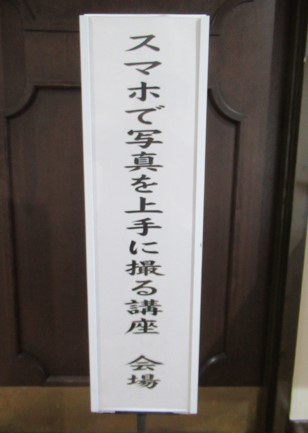 スマホで写真を上手に撮る講座　会場